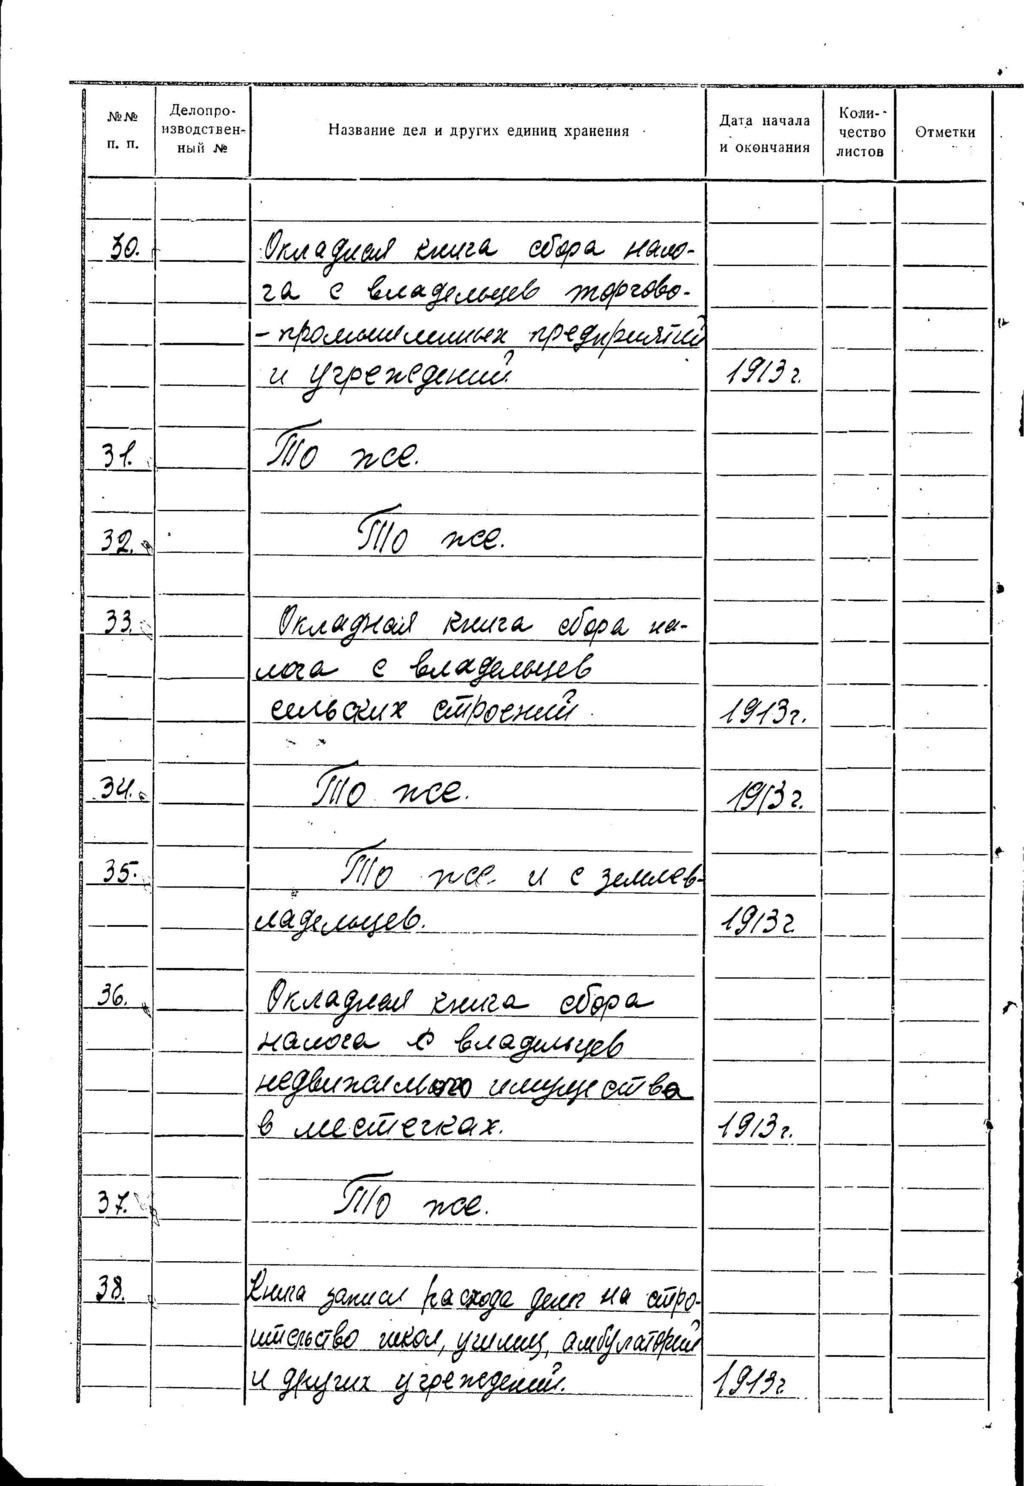 №№ п. п.
Делопро-
изводствен-
ный №
Название дел и других единиц хранения
Дата начала
и окончания
Коли-
чество
листов
Отметки
30. Окладная книга сбора нало-
га с владельцев торгово-
-промышленных предприятий
и учреждений. 1913 г.
31. То же.
32. То же.
33. Окладная книга сбора на-
лога с владельцев
сельских строений. 1913 г.
34. То же. 1913 г.
35. То же и с землев-
ладельцев. 1913 г
36. Окладная книга сбора
налога с владельцев
недвижимого имущества
в местечках. 1913 г.
37. То же.
38. Книга записи расхода денег на стро-
ительство школ, училищ, амбулаторий
и других учреждений. 1913 г